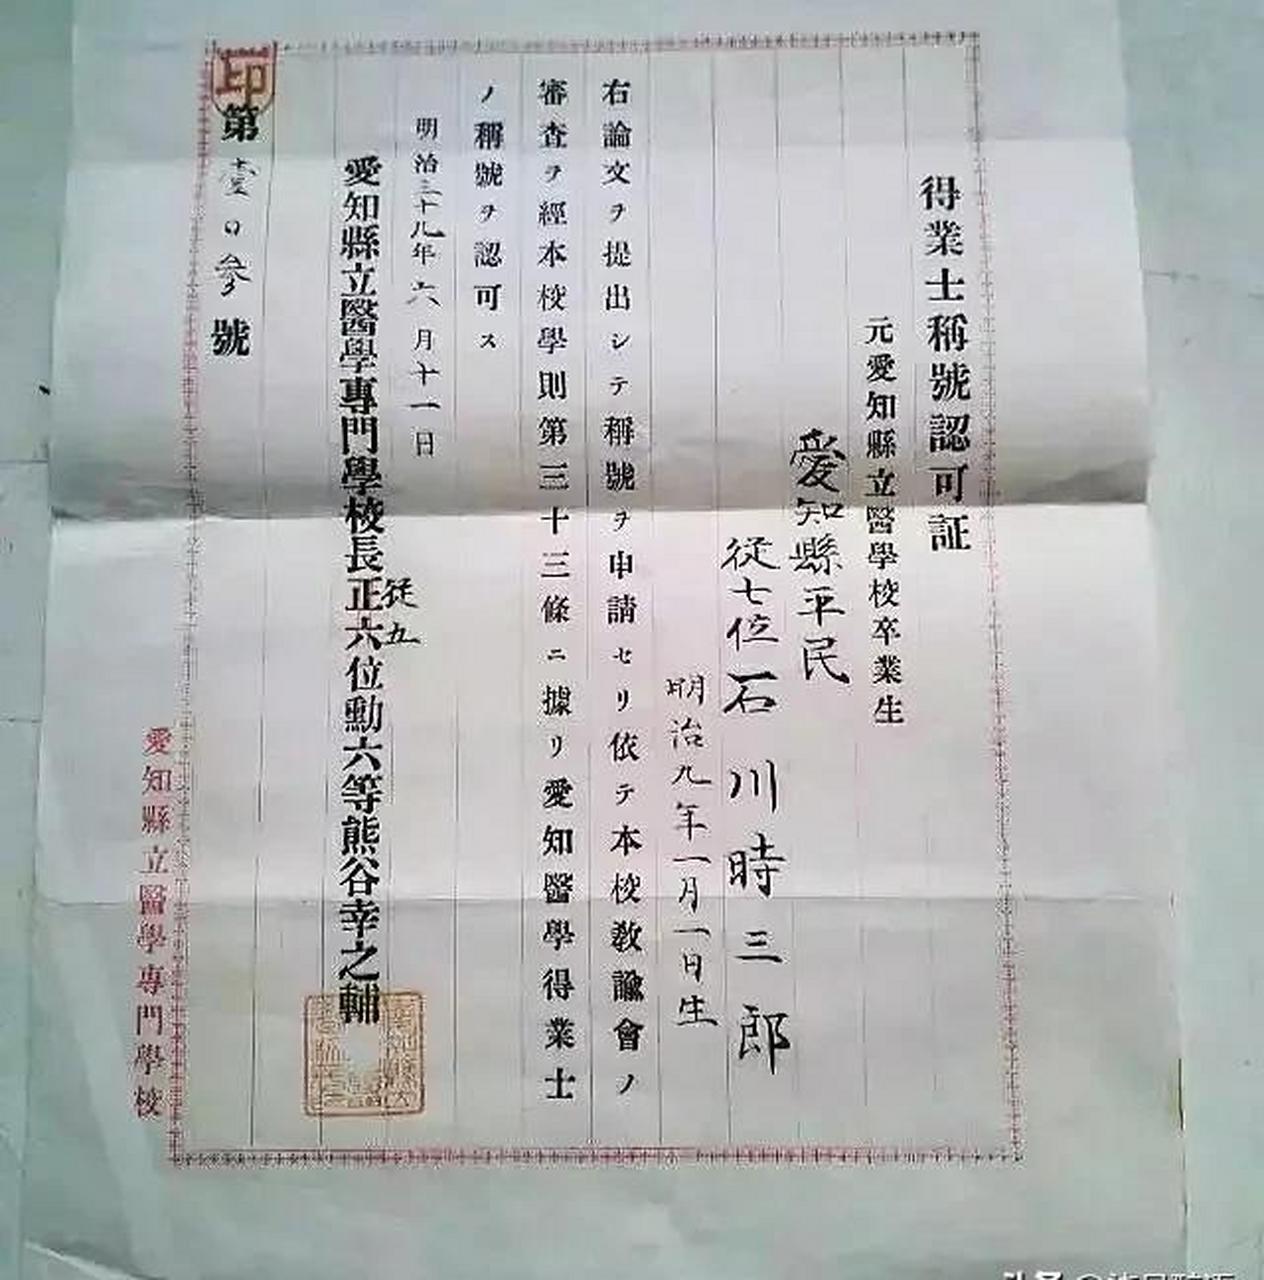 得業士稱號認可証
元愛知縣立醫學校卒業生
愛知縣平民
從七位石川時三郎
明治九年一月一日生
右論文ヲ提出シテ稱號ヲ申請セリ依テ本校敎諭會ノ
審査ヲ經本校學則第三十三條ニ據リ愛知醫學得業士
ノ稱號ヲ認可ス
明治三十九年六月十一日
愛知縣立醫學專門學校長正六位勳六等熊谷幸之輔
從五
第壹〇參號
印
愛知縣立醫學專門學校